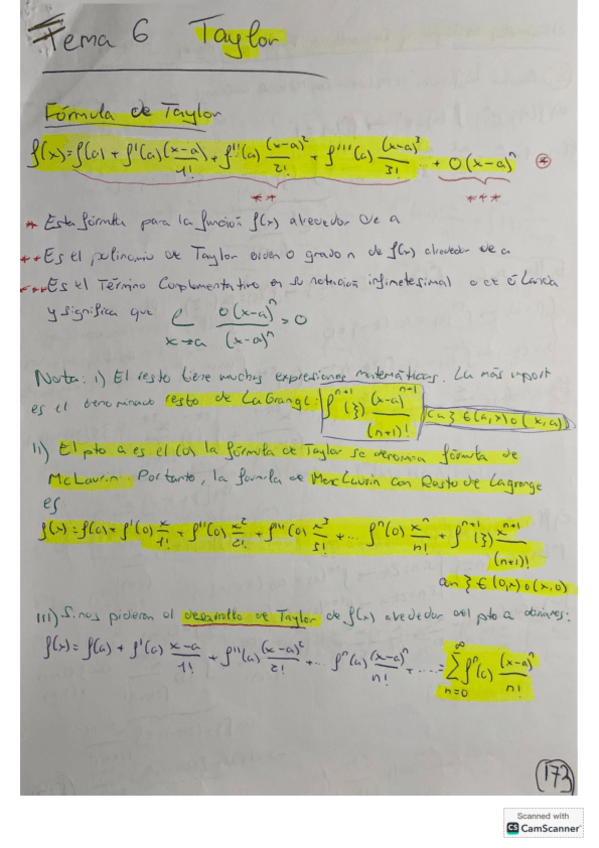 Tema 6 Taylor
Fórmula de Taylor
f(x)=f(a) + f'(a) (x-a)/1! + f''(a) (x-a)²/2! + f'''(a) (x-a)³/3! ... + o(x-a)ⁿ *
** ***
* Esta fórmula para la función f(x) alrededor de a
** Es el polinomio de Taylor orden o grado n de f(x) alrededor de a
*** Es el Término Complementario en su notación infinetesimal o de ó Landa
y significa que ℓ x→a o(x-a)ⁿ/(x-a)ⁿ = 0
Nota: i) El resto tiene muchas expresiones matemáticas. La más import
es el denominado resto de LaGrange: fⁿ⁺¹(ξ) (x-a)ⁿ⁺¹/(n+1)! con ξ ∈ (a,x) o (x,a)
ii) El pto a es el la fórmula de Taylor se denomina fórmula de
McLaurin. Por tanto, la formula de MacLaurin con Resto de Lagrange
es
f(x) = f(0) + f'(0) x/1! + f''(0) x²/2! + f'''(0) x³/3! + ... fⁿ(0) xⁿ/n! + fⁿ⁺¹(ξ) xⁿ⁺¹/(n+1)!
con ξ ∈ (0,x) o (x,0)
iii) Si nos pidieran el desarrollo de Taylor de f(x) alrededor del pto a
f(x) = f(a) + f'(a) x-a/1! + f''(a) (x-a)²/2! + ... fⁿ(a) (x-a)ⁿ/n! + .... = ∑ n=0 ∞ fⁿ(a) (x-a)ⁿ/n!
173
Scanned with
CS CamScanner